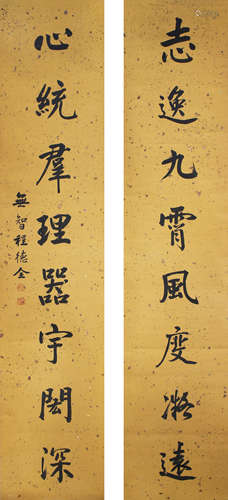 志逸九霄風度凝遠
心統羣理器宇閎深
無智程德全